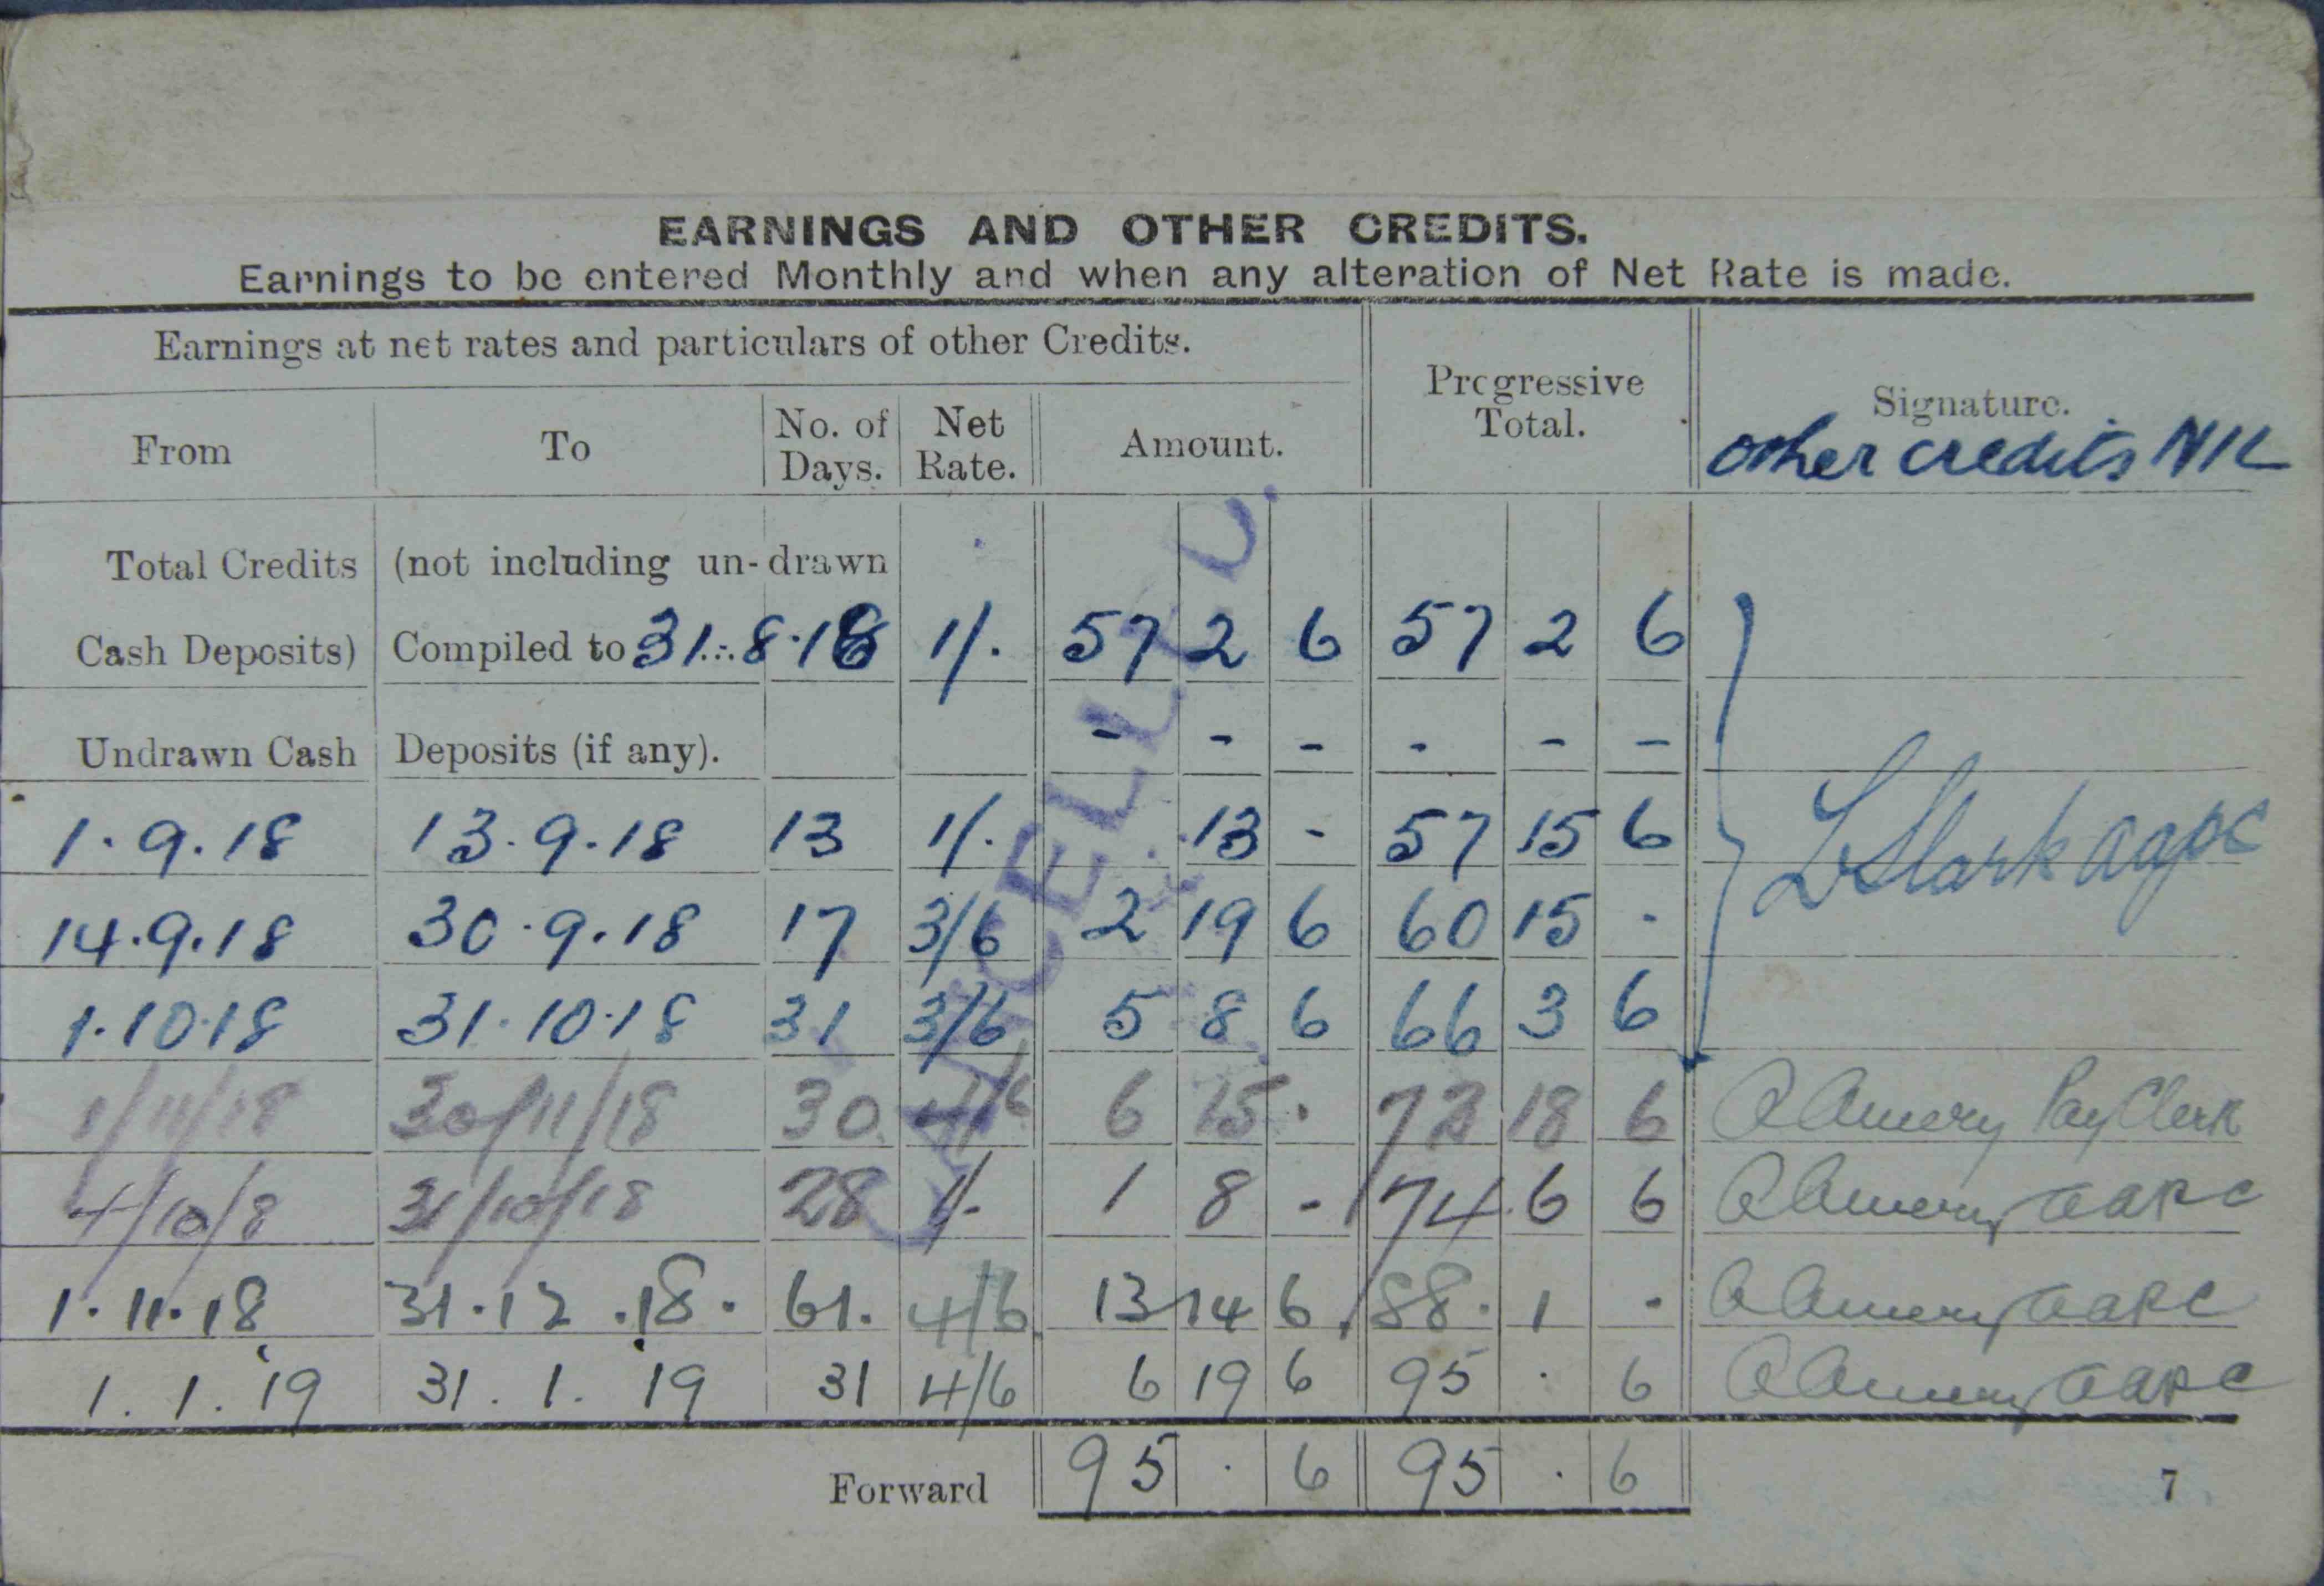 EARNINGS AND OTHER CREDITS.
Earnings to be entered Monthly and when any alteration of Net Rate is made.
Earnings at net rates and particulars of other Credits.
Progressive Total.
Signature.
other credits NIL
From To No. of Days. Net Rate. Amount.
Total Credits (not including un-drawn
Cash Deposits) Compiled to 31.8.18 1/. 57 2 6 57 2 6
Undrawn Cash Deposits (if any). - - - - - -
1.9.18 13.9.18 13 1/. 13 - 57 15 6
14.9.18 30.9.18 17 3/6 2 19 6 60 15 .
1.10.18 31.10.18 31 3/6 5 8 6 66 3 6
1/11/18 30/11/18 30 4/6 6 15 . 72 18 6 Pay Clerk
4/10/8 31/10/18 28 1/- 1 8 - 74 6 6 AAPC
1.11.18 31.12.18. 61. 4/6 13 14 6 88. 1 . AAPC
1.1.19 31.1.19 31 4/6 6 19 6 95 . 6 AAPC
Forward 95 . 6 95 . 6
7
CANCELLED.